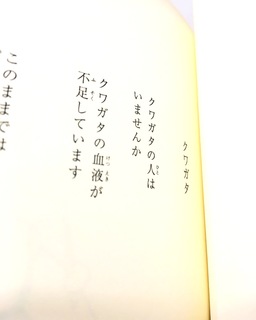 クワガタ
クワガタの人は
いませんか
クワガタの血液が
不足しています
このままでは